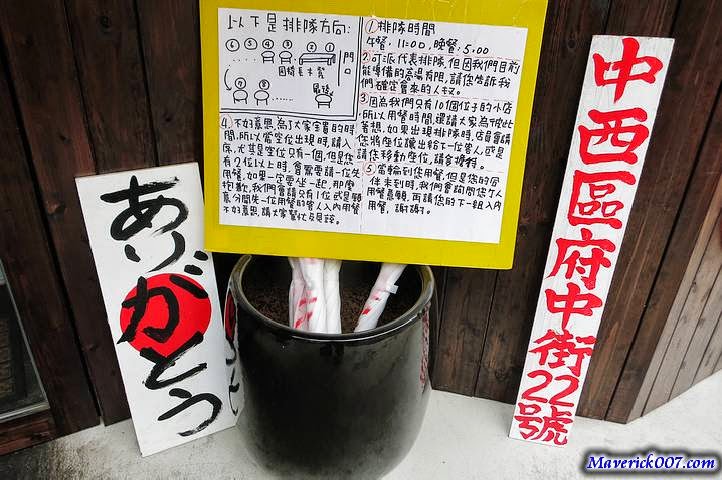 以下是排隊方向:
⑥ ⑤ ④ ③ ② ①
門口
圓椅 毛木凳
⑦ ⑧
①排隊時間
午餐,11:00,晚餐:5:00
②可派代表排隊,但因我們目前
能準備的高湯有限,請您告訴我
們確定會來的人數。
③因為我們只有10個位子的小店
所以用餐時間,還請大家為彼此
著想。如果出現排隊時,店員會請
您將座位讓出給下一位客人,或是
請您移動座位,請會擔待。
④不好意思,為了大家寶貴的時
間,所以當空位出現時,請入
席,尤其是位只有一個,但是您
有2位以上時,會緊要請一位先
用餐。如果一定要坐一起,那麼
抱歉,我們會請只有1位或是願
意分開先一位用餐的客人入內用餐
不好意思,請大家幫忙及見諒。
⑤當輪到您用餐,但是您的同
伴未到時,我們會詢問您個人
用餐意願,再請您的下一組入內
用餐,謝謝。
ありがとう
中西區府中街22號
Maverick007.com